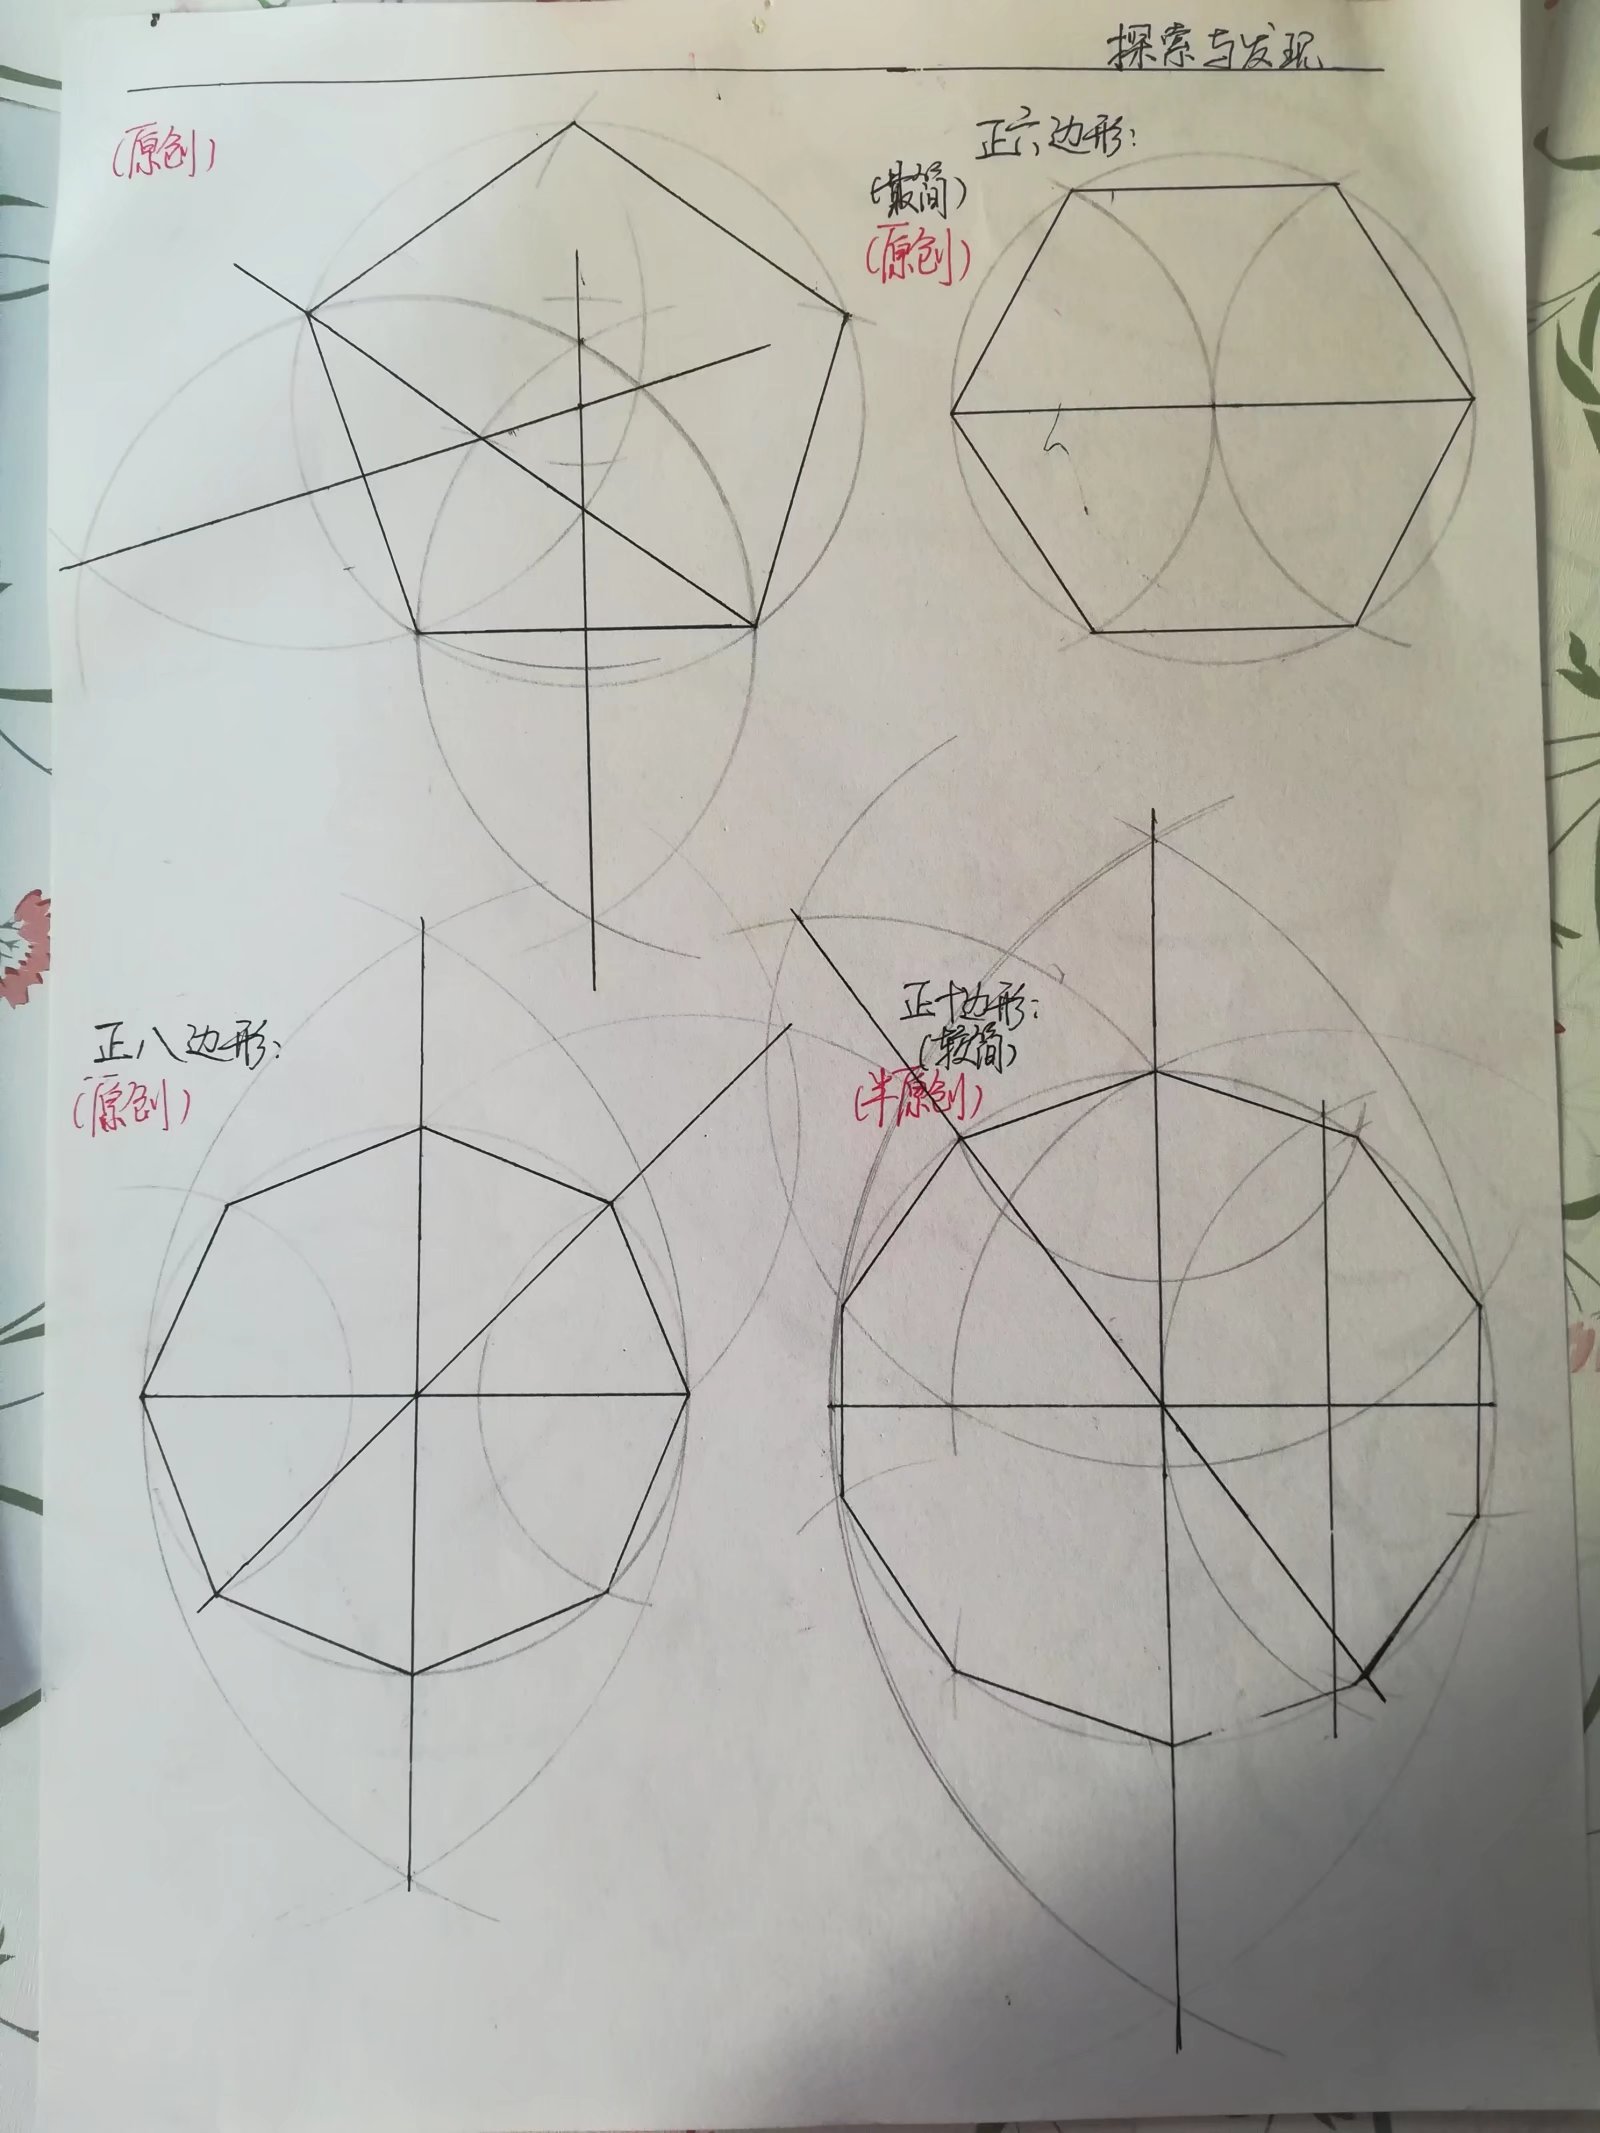 探索与发现
(原创)
正六边形:
(最简)
(原创)
正八边形:
(原创)
正十边形:
(较简)
(半原创)